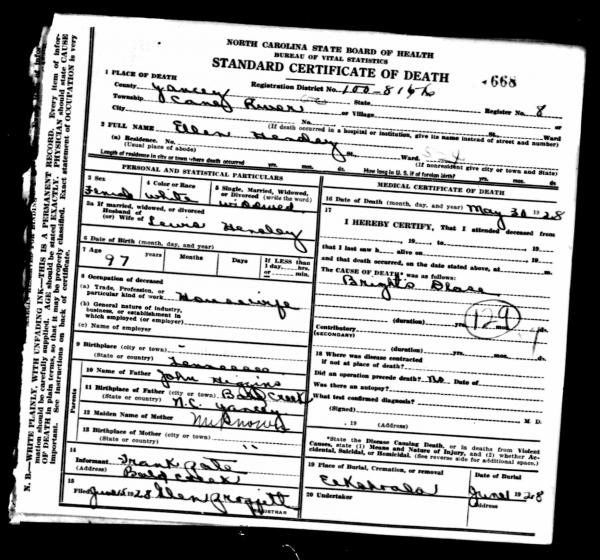 NORTH CAROLINA STATE BOARD OF HEALTH
BUREAU OF VITAL STATISTICS
STANDARD CERTIFICATE OF DEATH
668
1 PLACE OF DEATH
County Yancey Registration District No. 100-8146
Township Caney River State Register No. 8
City No. or Village St. or Ward
(If death occurred in a hospital or institution, give its name instead of street and number)
2 FULL NAME Ellen Hensley
(a) Residence. No. St. Ward.
(Usual place of abode) (If nonresident give city or town and State)
Length of residence in city or town where death occurred yrs. mos. ds. How long in U. S. if of foreign birth? yrs. mos. ds.
PERSONAL AND STATISTICAL PARTICULARS
3 Sex
4 Color or Race
5 Single, Married, Widowed, or Divorced (write the word)
Female White widowed
5a If married, widowed, or divorced
Husband of
(or) Wife of Lewis Hensley
6 Date of Birth (month, day, and year)
7 Age 97 years Months Days If LESS than 1 day, hrs. or min.
8 Occupation of deceased
(a) Trade, Profession, or particular kind of work Housewife
(b) General nature of industry, business, or establishment in which employed (or employer)
(c) Name of employer
9 Birthplace (city or town) -
(State or country) Tennessee
Parents
10 Name of Father John Higgins
11 Birthplace of Father (city or town) Bald Creek
(State or country) N.C. Yancey
12 Maiden Name of Mother Unknown
13 Birthplace of Mother (city or town)
(State or country) "
14
Informant Frank
(Address) Bald Creek
15
Filed June 1928
REGISTRAR
MEDICAL CERTIFICATE OF DEATH
16 Date of Death (month, day, and year) May 31 1928
17
I HEREBY CERTIFY, That I attended deceased from
19 to 19
that I last saw h alive on 19
and that death occurred, on the date stated above, at m.
The CAUSE OF DEATH was as follows:
Brights Dease
129
(duration) yrs. mos. ds.
Contributory
(SECONDARY)
(duration) yrs. mos. ds.
18 Where was disease contracted
if not at place of death?
Did an operation precede death? No Date of
Was there an autopsy?
What test confirmed diagnosis?
(Signed) M. D.
, 19 (Address)
*State the Disease Causing Death, or in deaths from Violent Causes, state (1) Means and Nature of Injury, and (2) whether Accidental, Suicidal, or Homicidal. (See reverse side for additional space.)
19 Place of Burial, Cremation, or removal Date of Burial
June 1 1928
20 Undertaker Address
N. B.—WRITE PLAINLY, WITH UNFADING INK—THIS IS A PERMANENT RECORD. Every item of information should be carefully supplied. AGE should be stated EXACTLY. PHYSICIAN should state CAUSE OF DEATH in plain terms, so that it may be properly classified. Exact statement of OCCUPATION is very important. See instructions on back of certificate.